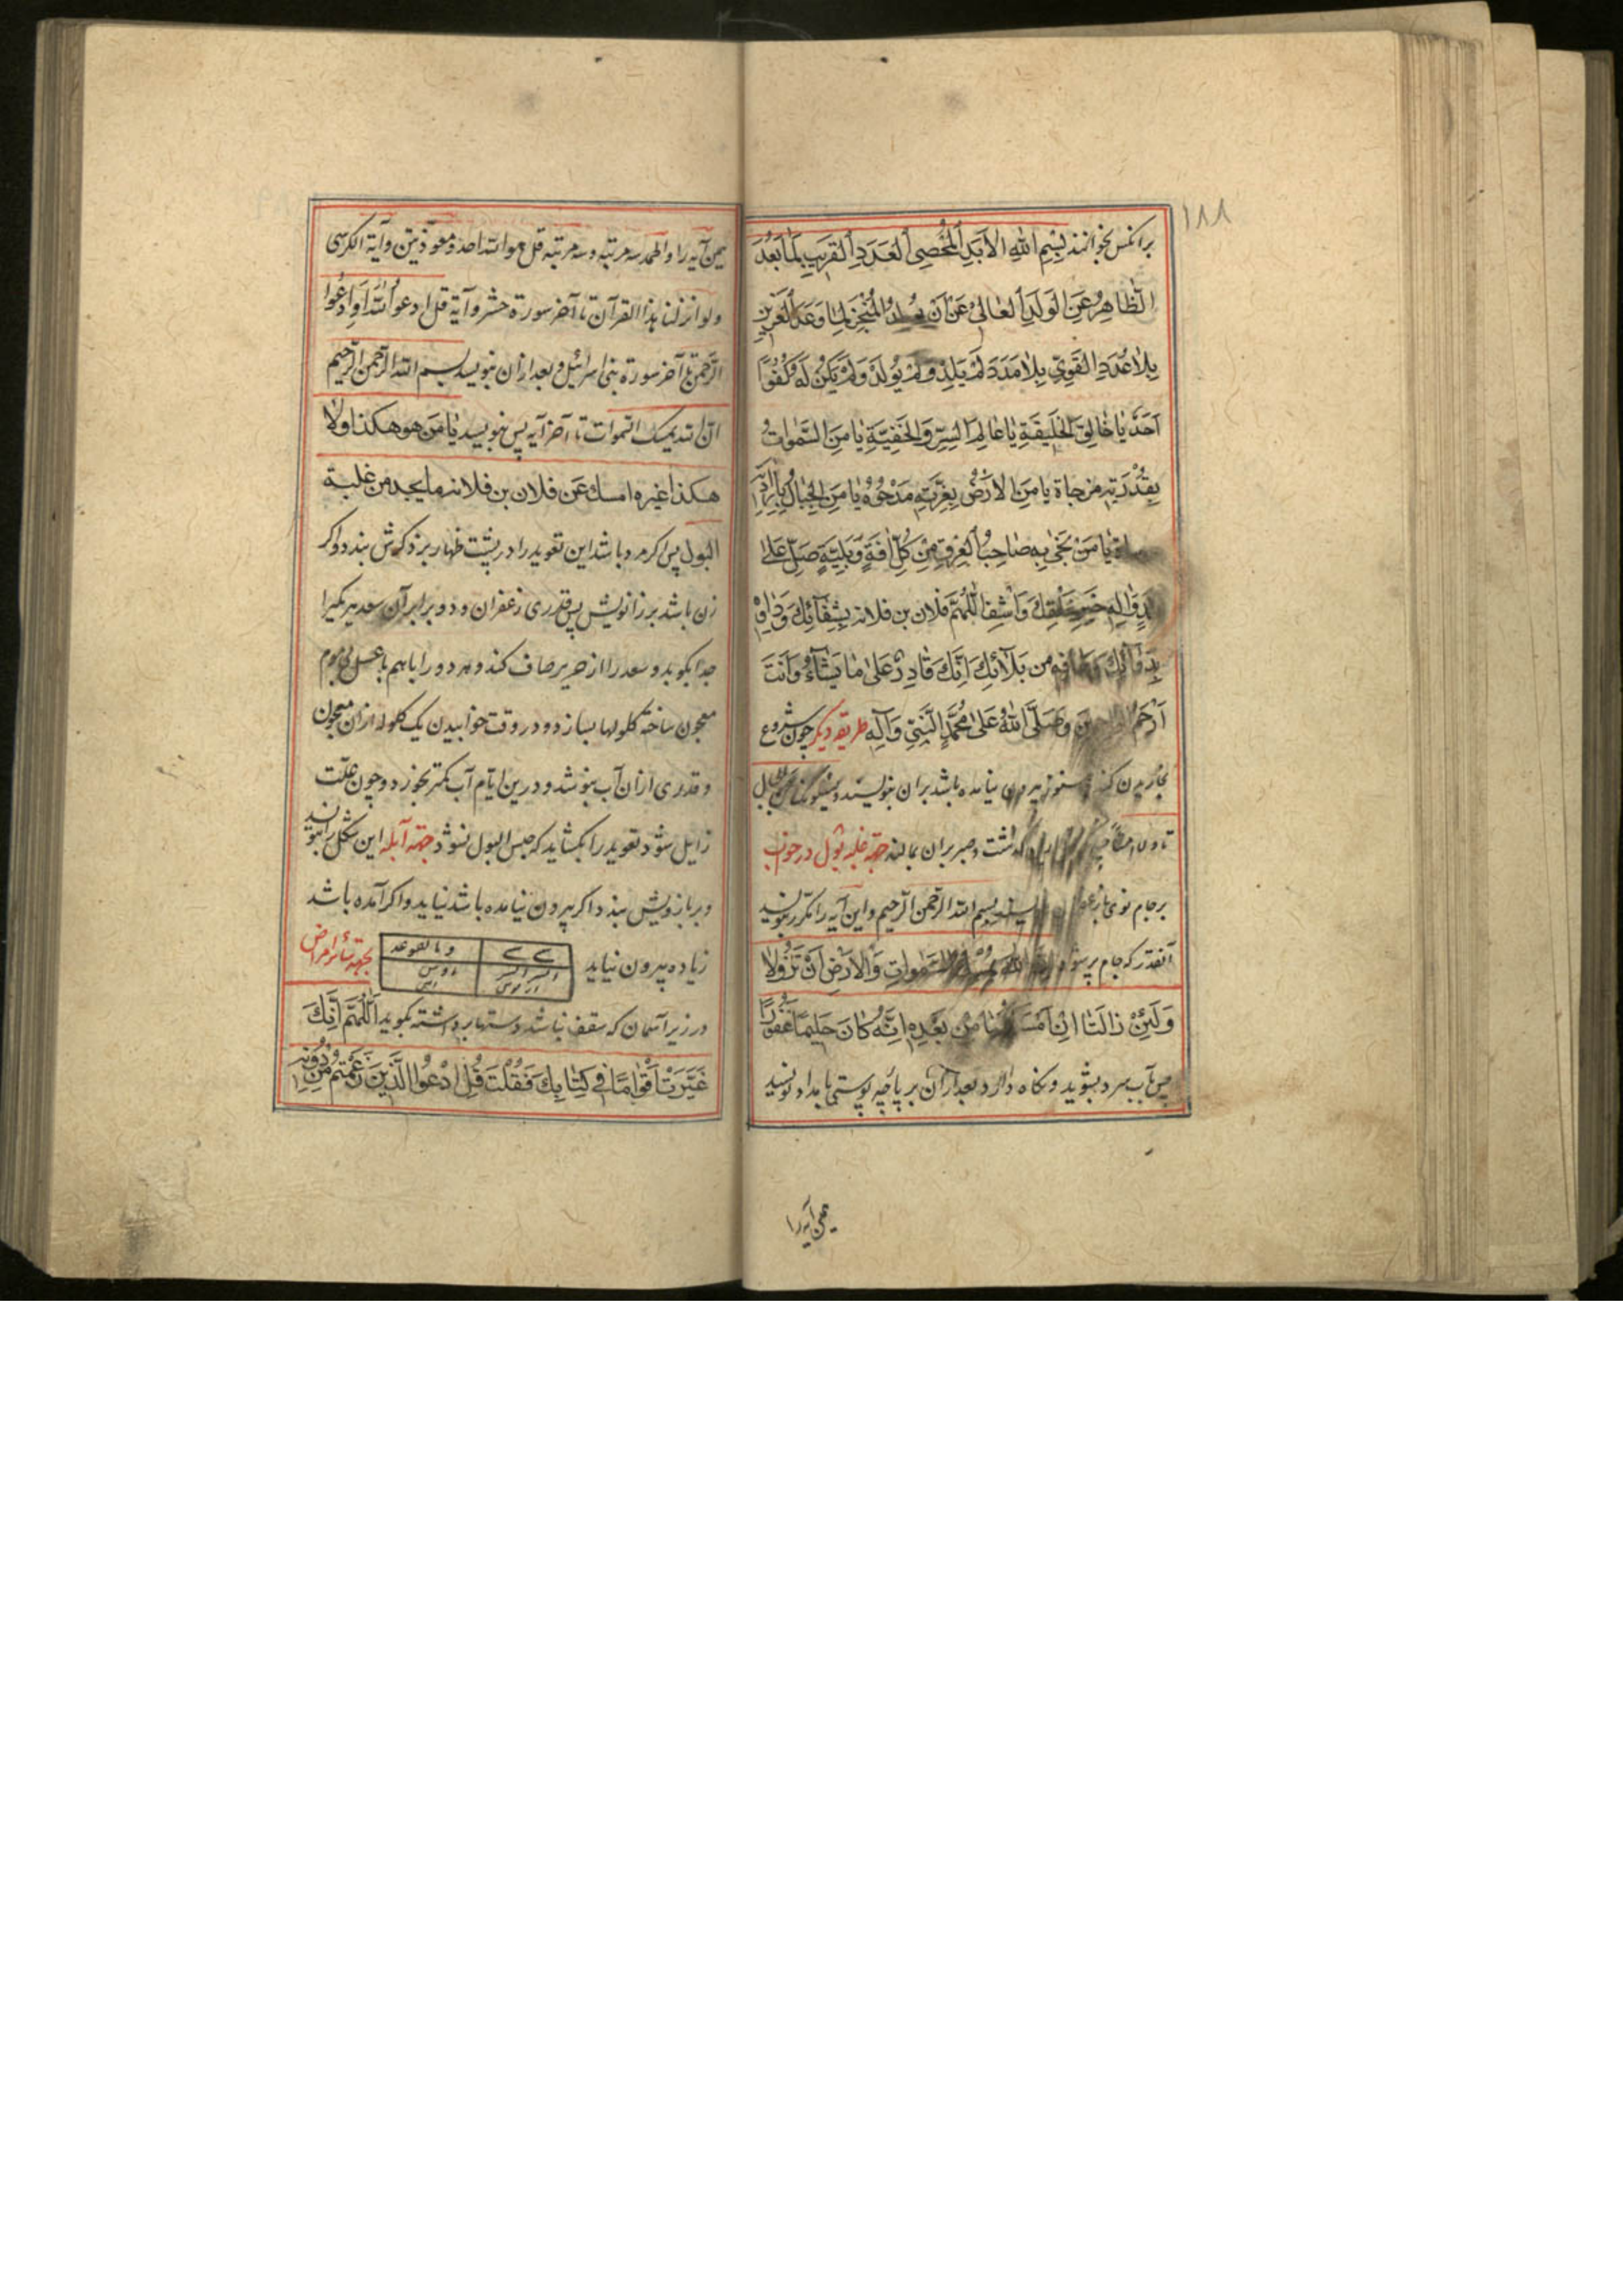 ١٨٨
برانکس بخوانند بِسْمِ اللّٰهِ الاَبَدِ اَلْمُحْصِی اَلعَدَدِ اَلقَرِیبِ لِمَا بَعُدَ
اَلطَّاهِرِ عَنِ الوَلَدِ اَلعَالِی عَنْ اَنْ یُولَدَ اَلْمُنْجِزِ لِمَا وَعَدَ اَلعَزِیزِ
بِلَا عُدَدٍ القَوِیِّ بِلَا مَدَدٍ لَمْ یَلِدْ وَلَمْ یُولَدْ وَلَمْ یَکُنْ لَهُ کُفُوًا
اَحَدٌ یَا خَالِقَ الخَلِیقَةِ یَا عَالِمَ السِّرِّ وَالخَفِیَّةِ یَا مَنِ السَّمٰوَاتُ
بِقُدْرَتِهِ مزجاة یَا مَنِ الاَرْضُ بِعِزَّتِهِ مَدْحُوَّةٌ یَا مَنِ الجِبَالُ
یَا مَنْ نَجٰی بِهِ صَاحِبُ الغرق مِنْ کُلِّ اٰفَةٍ وَبَلِیَّةٍ صَلِّ عَلٰی
وَاٰلِهِ خَیْرِ خَلْقِکَ وَاشْفِ اَللّٰهُمَّ فلان بن فلانه بِشِفَائِکَ وَدَاوِهْ
بِدَوَائِکَ وعافه من بَلَائِکَ اِنَّکَ قَادِرٌ عَلٰی مَا یَشَاءُ وَاَنْتَ
اَرْحَمُ الراحمین وَصَلَّی اللّٰهُ عَلٰی مُحَمَّدٍ النَّبِیِّ وَآلِهِ طریقه دیکر چون شروع
بیرون نیامده باشد بران بنویسند
وصبر بران بمالند جهة غلبه بول در خواب
برجام نوی بسم الله الرحمن الرحیم واین آیه را مکرر بنویسند
آنقدر که جام پر شود ان الله یمسک السَّمٰوَاتِ وَالاَرْضَ اَنْ تَزُولَا
وَلَئِنْ زَالَتَا اِنْ اَمْسَکَهُمَا مِنْ بَعْدِهِ اِنَّهُ کَانَ حَلِیمًا غَفُورًا
پس بآب سرد بشوید ونکاه دارد بعد ازان بر پارچه پوستی بامداد نویسند
همین آیه را
همین آیه را والحمد سه مرتبه وسه مرتبه قل هو الله احد ومعوذتین وآیة الکرسی
ولو انزلنا هذا القرآن تا آخر سورة حشر وآیة قل ادعوا اللّٰه اَوِ ادْعُوا
الرَّحمن تا آخر سورة بنی اسرائیل وبعد ازان بنویسد بسم الله الرحمن الرحیم
ان الله یمسک السموات تا آخر آیه پس بنویسد یَا مَن هو هکذا ولا
هکذا غیره امسک عَن فلان بن فلانه ما یجد من غلبة
البول پس اکر مرد باشد این تعوید را در پشت ظهار بر ذکرش بندد واکر
زن باشد بر زانویش پس قدری زعفران ودو برابر آن سعد بهر بکیرا
جدا بکوبد وسعد را از حریر صاف کند وهر دو را باهم با عسل بی موم
معجون ساخته کلولها بسازد ودر وقت خوابیدن یک کلوله ازان معجون
وقدری ازان آب بنوشد ودرین ایام آب کمتر بخورد وچون علّت
زایل شود تعوید را بکشاید که حبس البول نشود جهة آبله این شکل را بنویسند
وبر بازویش بندد اکر بیرون نیامده باشد نیاید واکر آمده باشد
زیاده بیرون نیاید
بجهة سائر امراض
در زیر آسمان که سقف نباشد دستها برداشته بکوید اَللّٰهُمَّ اِنَّکَ
عَیَّرْتَ اَقْوَامًا فِی کِتَابِکَ فَقُلْتَ قُلِ ادْعُوا الَّذِینَ زَعَمْتُمْ مِنْ دُونِهِ